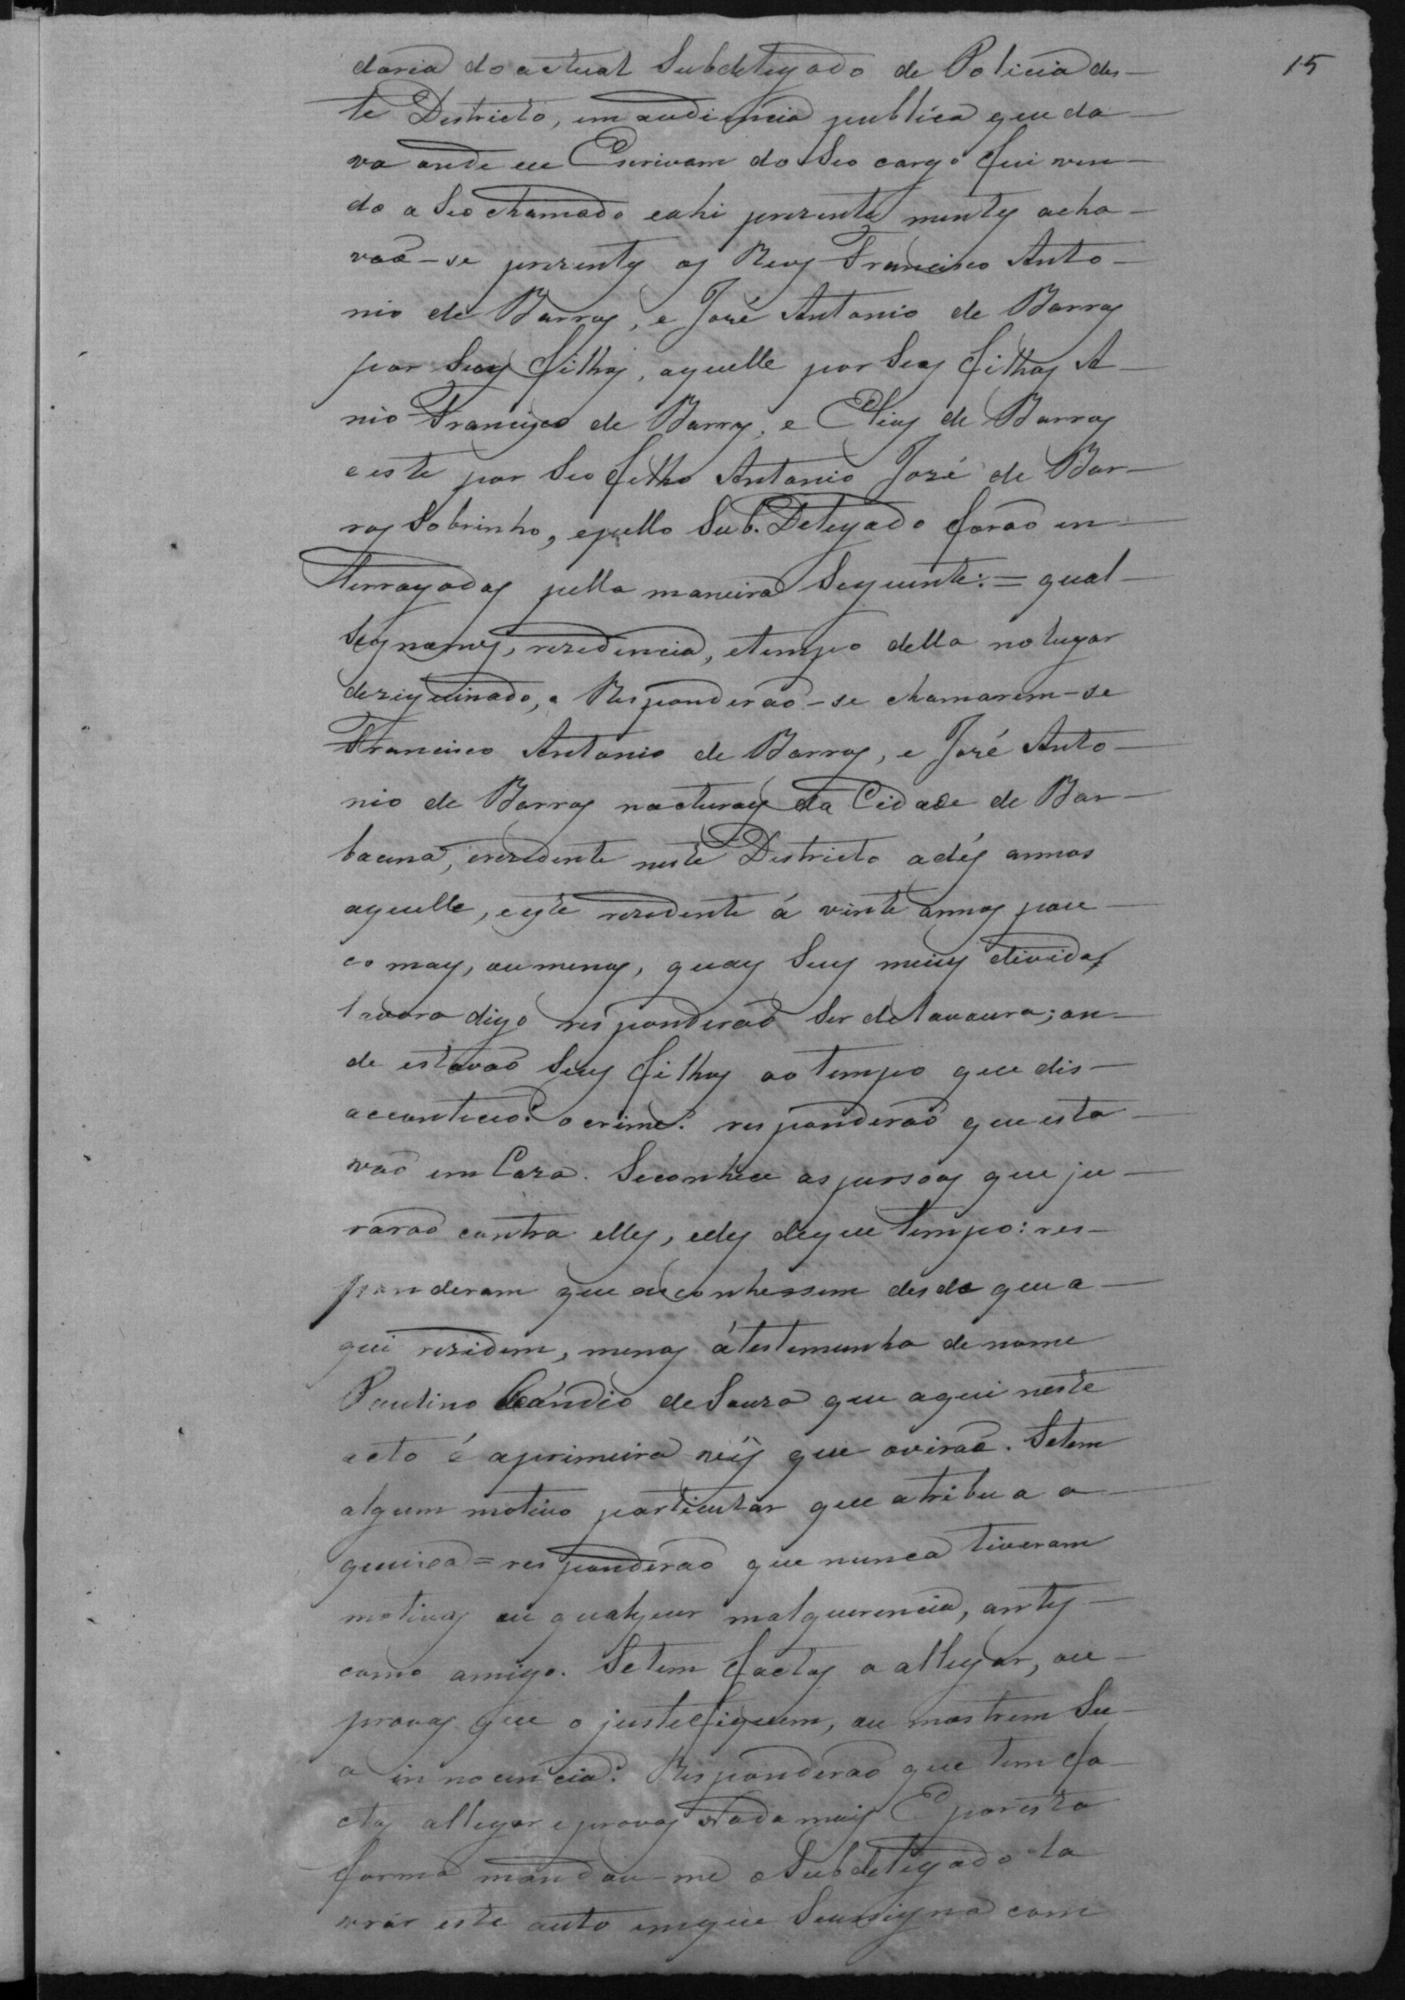 15
daria do actual Subdelegado de Policia des-
te Districto, em audiencia publica que da-
va onde eu Escrivam do Seo cargo fui vin-
do a Seo chamado eahi prezente mentes acha-
vaõ-se prezentes os Reos Francisco Anto-
nio de Barros, e José Antonio de Barros
por Seos filhos, aquelle por Seos filhos A-
nio Francisco de Barros, e Elias de Barros
e este por Seo filho Antonio José de Bar-
ros Sobrinho, epello Sub.Delegado foraõ in-
terrogados pella maneira Seguinte:= qual
Seos nomes, rezidencia, etempo della nolugar
dezieguinado, e Responderaõ-se chamarem-se
Francisco Antonio de Barros, e José Anto-
nio de Barros nacturaes da Cidade de Bar-
bacena, erezidente neste Districto adés annos
aquelle, eeste rezidente á vinte annos pou-
co mays, oumenos, quays Seus meius devidas
lavora digo responderaõ Ser delavoura; on-
de estavaõ Seus filhos ao tempo que dis-
accontecio o crime: responderaõ que esta-
vaõ em Caza. Seconhece as pursoas que ju-
raraõ contra elles, edes deque tempo: res-
ponderam que os conhessem desde que a-
qui rezidem, menos átestemunha de nome
Paulino Cándio de Souza que aqui neste
acto é aprimeira veis que oviraõ. Setem
algum motivo particular que atribua a
queixa= responderaõ que nunca tiveram
motivos ou qualquer malquerencia, antes
como amigo. Setem factos a allegar, ou
provas que o justefiquem, ou mostrem Su-
a innocencia: Responderaõ que tem fa-
ctos allegar eprovas Nada mais E por esta
forma mandou-me o Subdelegado la-
vrar este auto emque Seusigna com